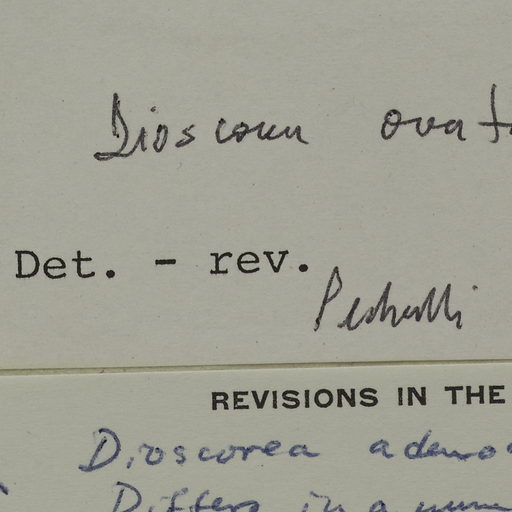 Dioscorea ovat
Det. - rev.
Pedralli
REVISIONS IN THE
Dioscorea adeno
Differs in a num